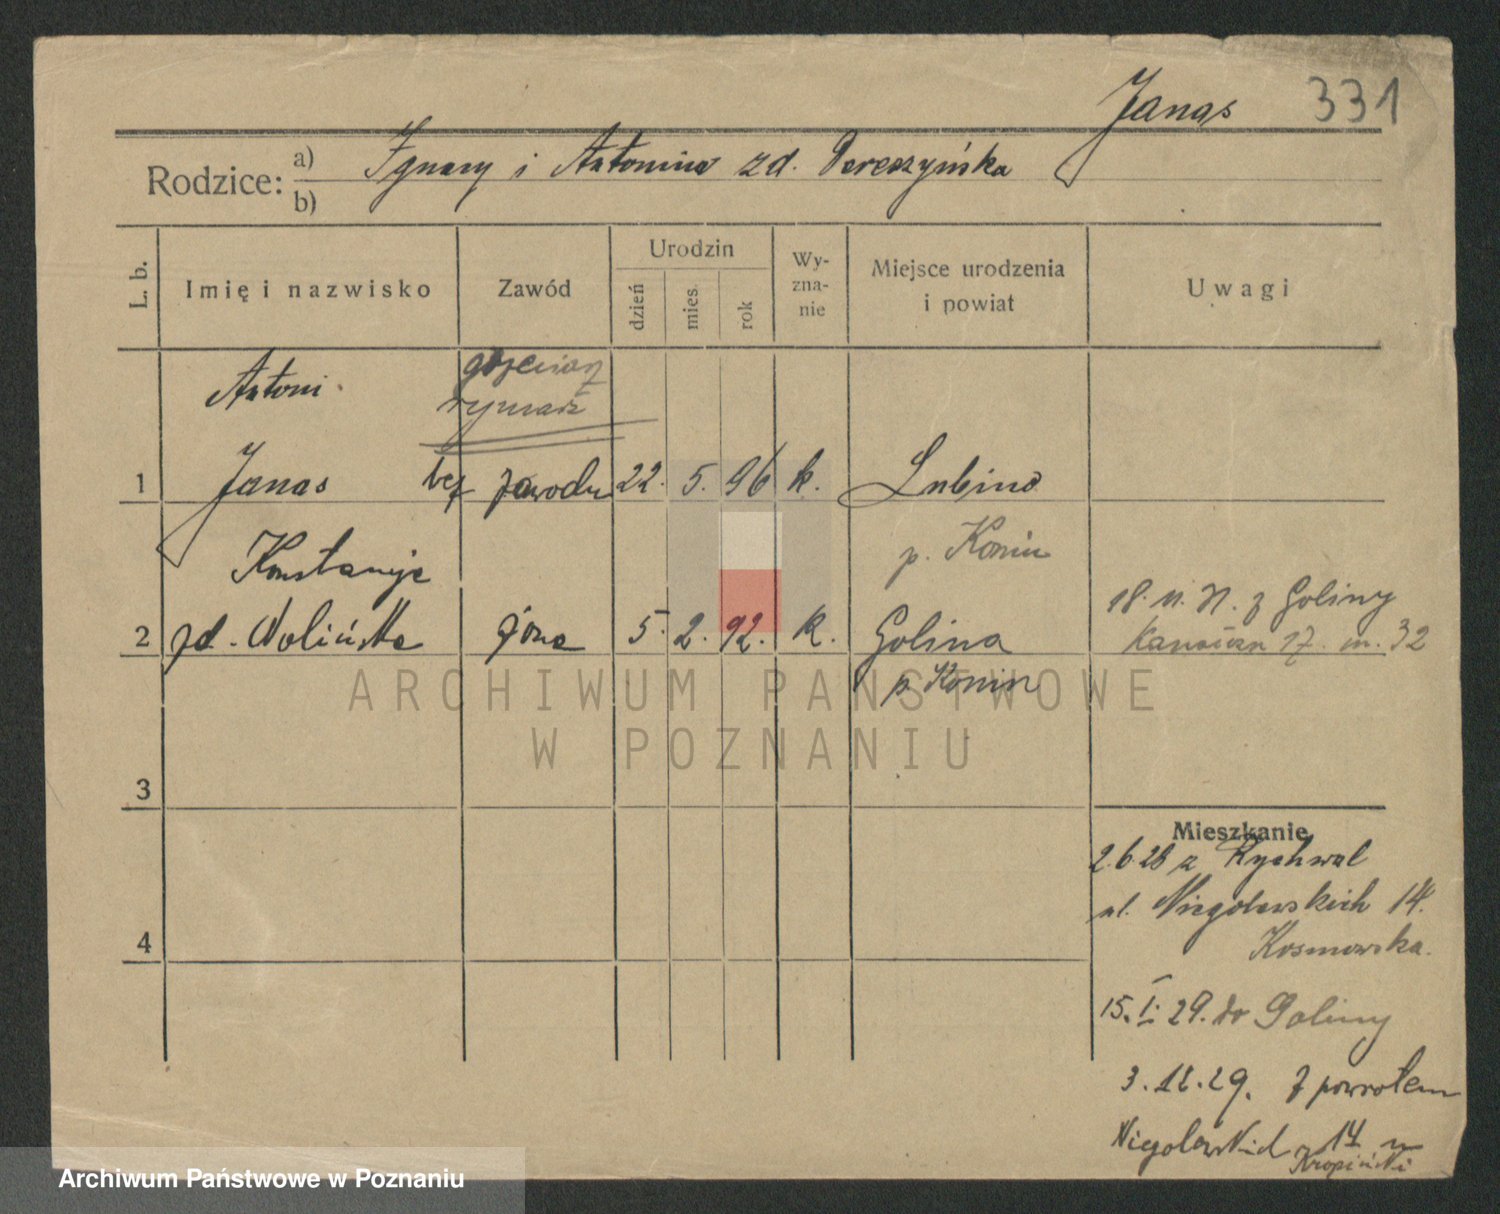 Janas 331
Rodzice: a) Ignacy i Antonina zd. Dereszyńska
b)
L. b. Imię i nazwisko Zawód Urodzin dzień mies. rok Wy-zna-nie Miejsce urodzenia i powiat Uwagi
Antoni
rymarz
1 Janas bez zawodu 22. 5. 96 k. Lubino
p. Konin
Konstancja
2 zd. Wolińska żona 5. 2. 92. k. Golina
p. Konin
z Goliny
17. m. 32
3
4
Mieszkanie
2.6.28 z Rychwal
ul. Niegolewskich 14.
Kosmowska.
15. I. 29. do Goliny
3. 12. 29. z powrotem
Niegolewskich 14 u
Kropiński
ARCHIWUM PAŃSTWOWE
W POZNANIU
Archiwum Państwowe w Poznaniu